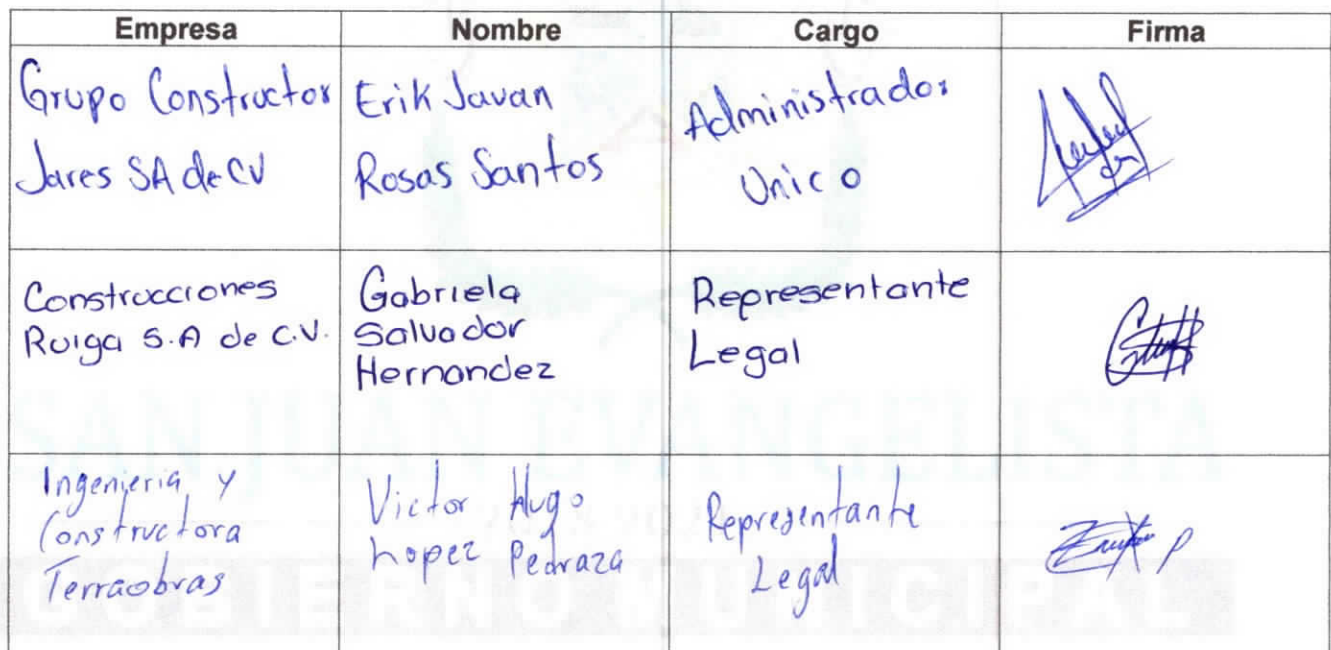 Empresa Nombre Cargo Firma
Grupo Constructor
Jares SA de CV
Erik Javan
Rosas Santos
Administrador
Unico
Construcciones
Ruiga S.A de C.V.
Gabriela
Salvador
Hernandez
Representante
Legal
Ingenieria y
Constructora
Terraobras
Victor Hugo
Lopez Pedraza
Representante
Legal
SAN JUAN EVANGELISTA
GOBIERNO MUNICIPAL